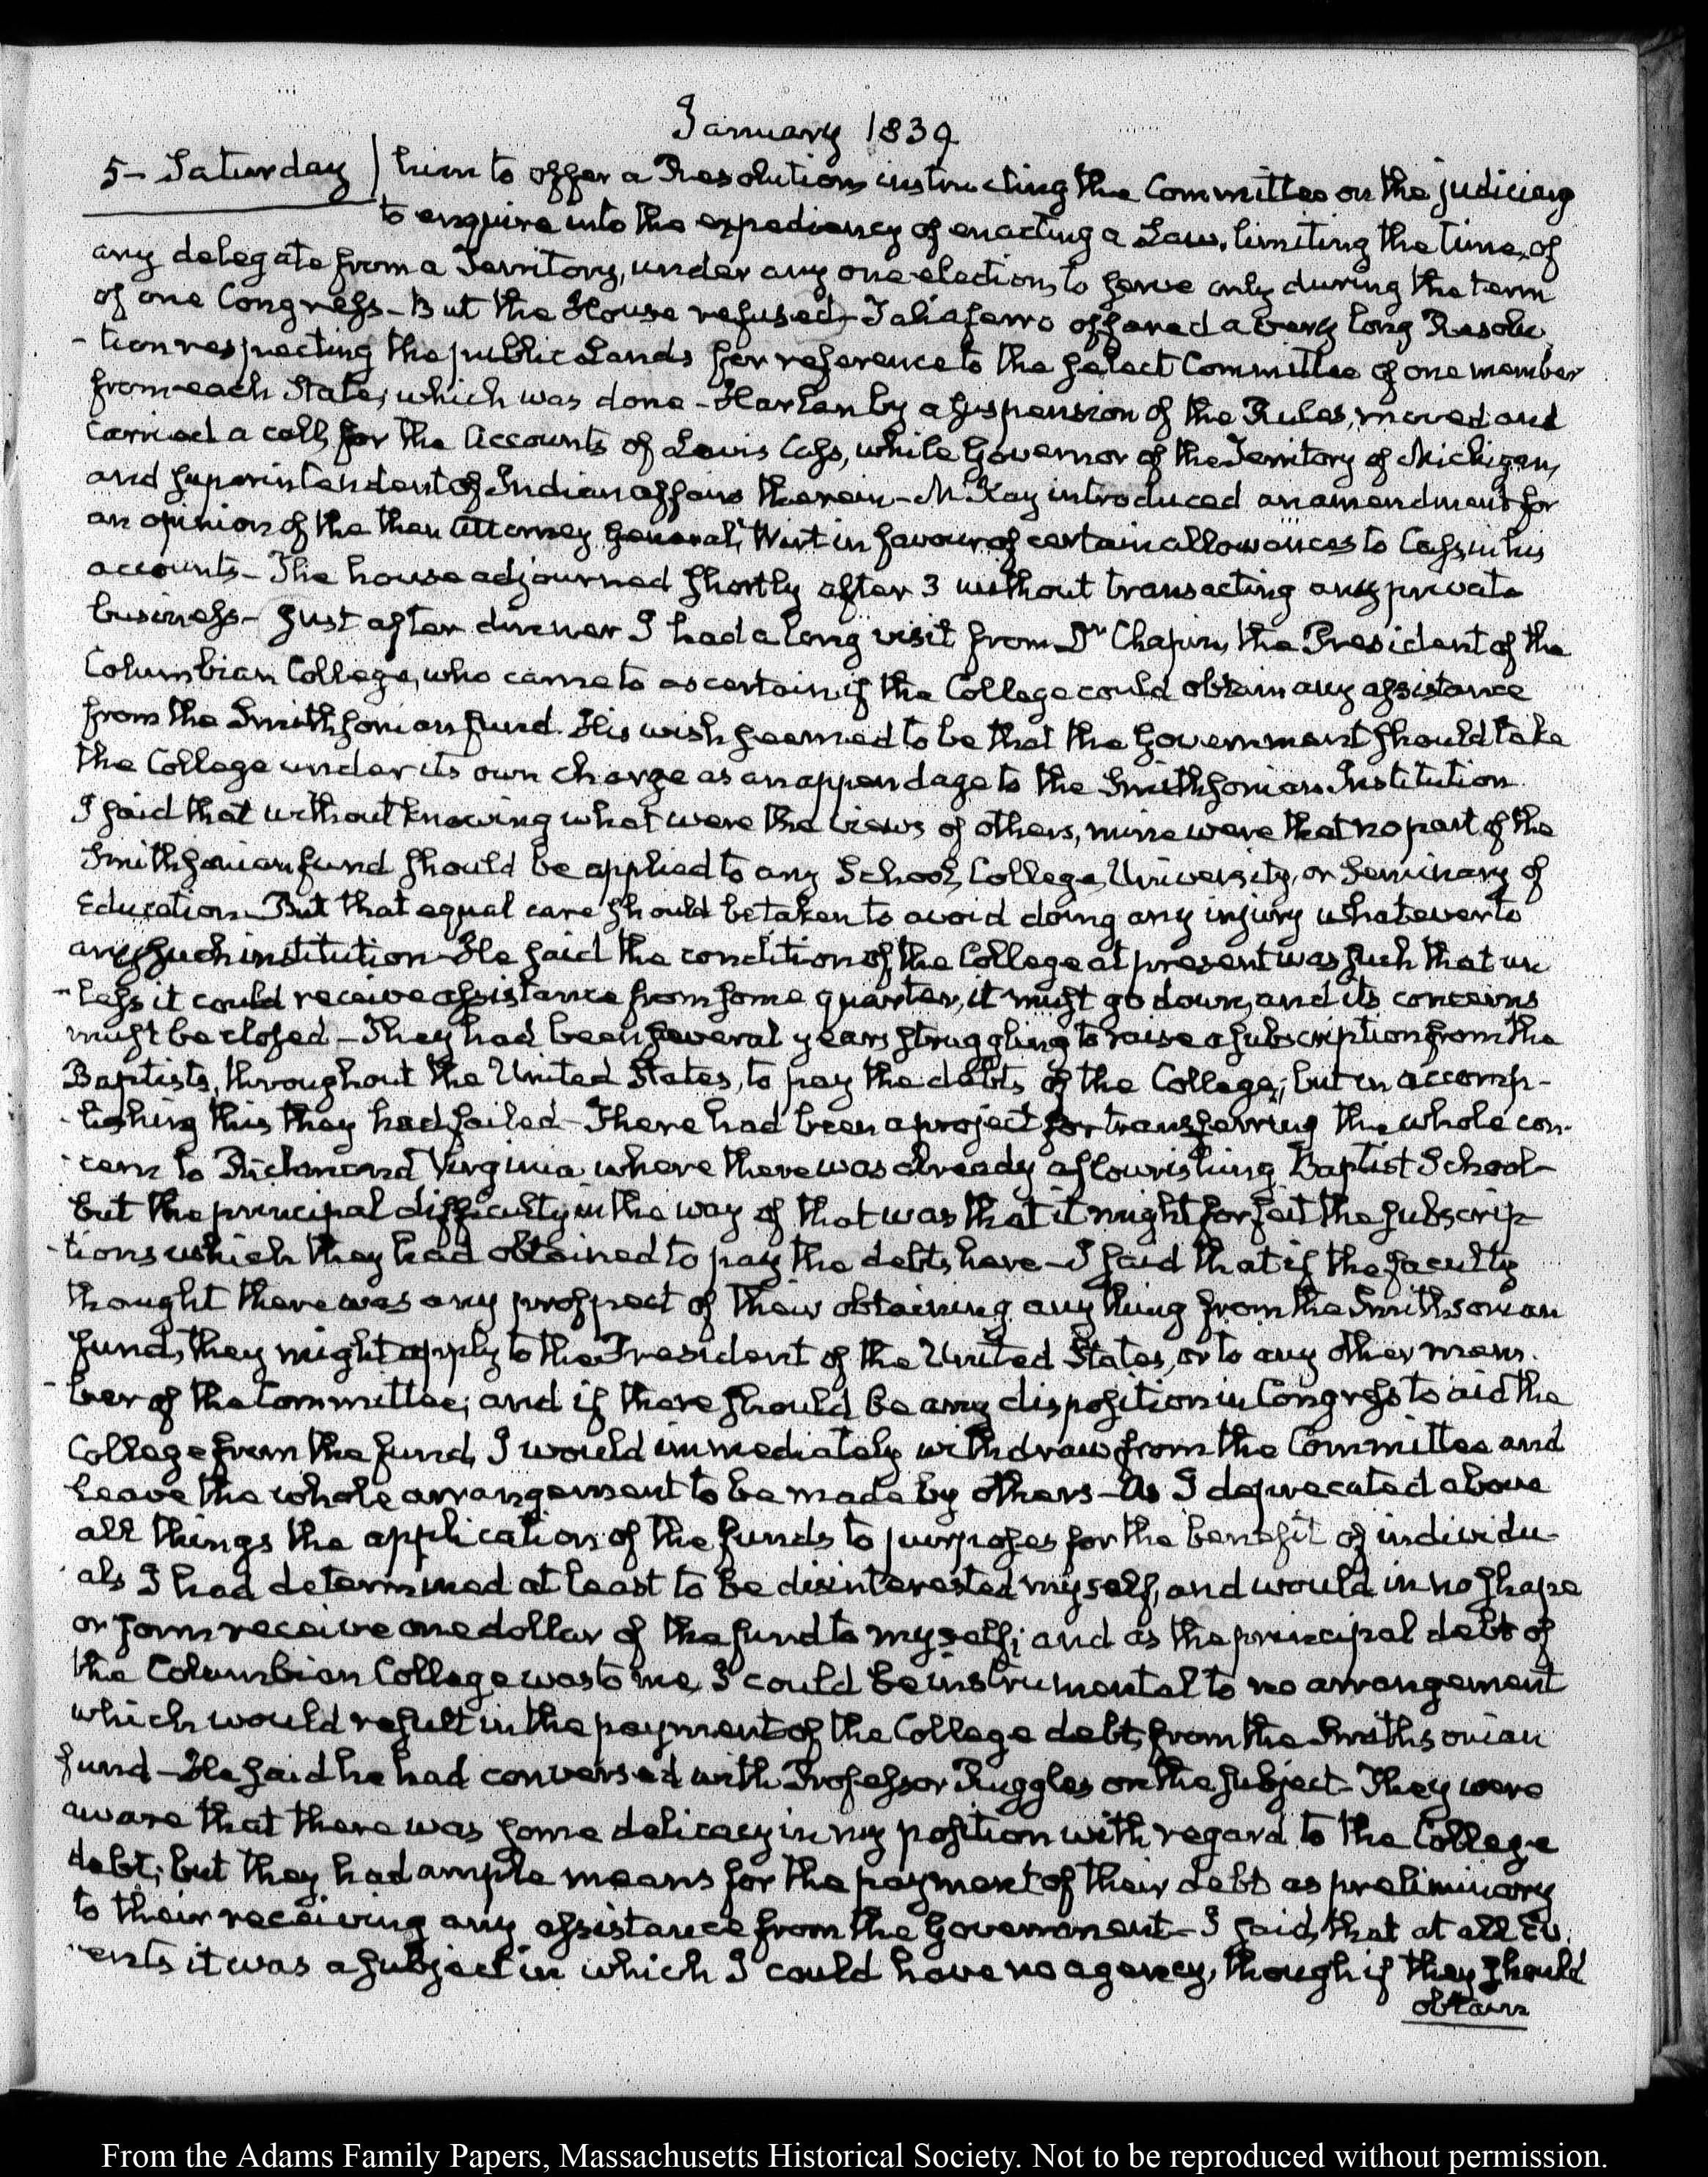 January 1839
5 - Saturday | him to offer a Resolution instructing the Committee on the judiciary
to enquire into the expediency of enacting a Law, limiting the time, of
any delegate from a Territory, under any one election, to serve only during the term
of one Congress - But the House refused - Taliaferro offered a very long Resolu-
-tion respecting the public Lands for reference to the select Committee of one member
from each State; which was done - Harlan by a suspension of the Rules, moved and
carried a call, for the Accounts of Lewis Cass, while Governor of the Territory of Michigan,
and superintendent of Indian affairs therein - McKay introduced an amendment for
an opinion of the then Attorney General, Wirt in favour of certain allowances to Cass in his
accounts - The house adjourned shortly after 3 without transacting any private
business - Just after dinner I had a long visit from Dr Chapin, the President of the
Columbian College, who came to ascertain if the College could obtain any assistance
from the Smithsonian fund. His wish seemed to be that the Government should take
the College under its own charge as an appendage to the Smithsonian Institution.
I said that without knowing what were the views of others, mine were that no part of the
Smithsonian fund should be applied to any School, College, University, or Seminary of
Education - But that equal care should be taken to avoid doing any injury whatever to
any such institution - He said the condition of the College at present was such that un
-less it could receive assistance from some quarter, it must go down, and its concerns
must be closed - They had been several years struggling to raise a subscription from the
Baptists, throughout the United States, to pay the debts of the College; but in accomp-
-lishing this they had failed - There had been a project for transferring the whole con-
-cern to Richmond Virginia, where there was already a flourishing Baptist School -
but the principal difficulty in the way of that was that it might forfeit the subscrip
-tions which they had obtained to pay the debts here - I said that if the faculty
thought there was any prospect of their obtaining any thing from the Smithsonian
fund, they might apply to the President of the United States, or to any other mem-
-ber of the Committee; and if there should be any disposition in Congress to aid the
College from the fund, I would immediately withdraw from the Committee and
leave the whole arrangement to be made by others - As I deprecated above
all things the application of the funds to purposes for the benefit of individu-
-als I had determined at least to be disinterested myself, and would in no shape
or form receive one dollar of the fund to myself; and as the principal debt of
the Columbian College was to me, I could be instrumental to no arrangement
which would result in the payment of the College debt, from the Smithsonian
fund - He said he had conversed with Professor Ruggles on the subject - They were
aware that there was some delicacy in my position with regard to the College
debt; but they had ample means for the payment of their debt as preliminary
to their receiving any assistance from the Government - I said, that at all ev-
-ents it was a subject in which I could have no agency, though if they should
obtain
From the Adams Family Papers, Massachusetts Historical Society. Not to be reproduced without permission.